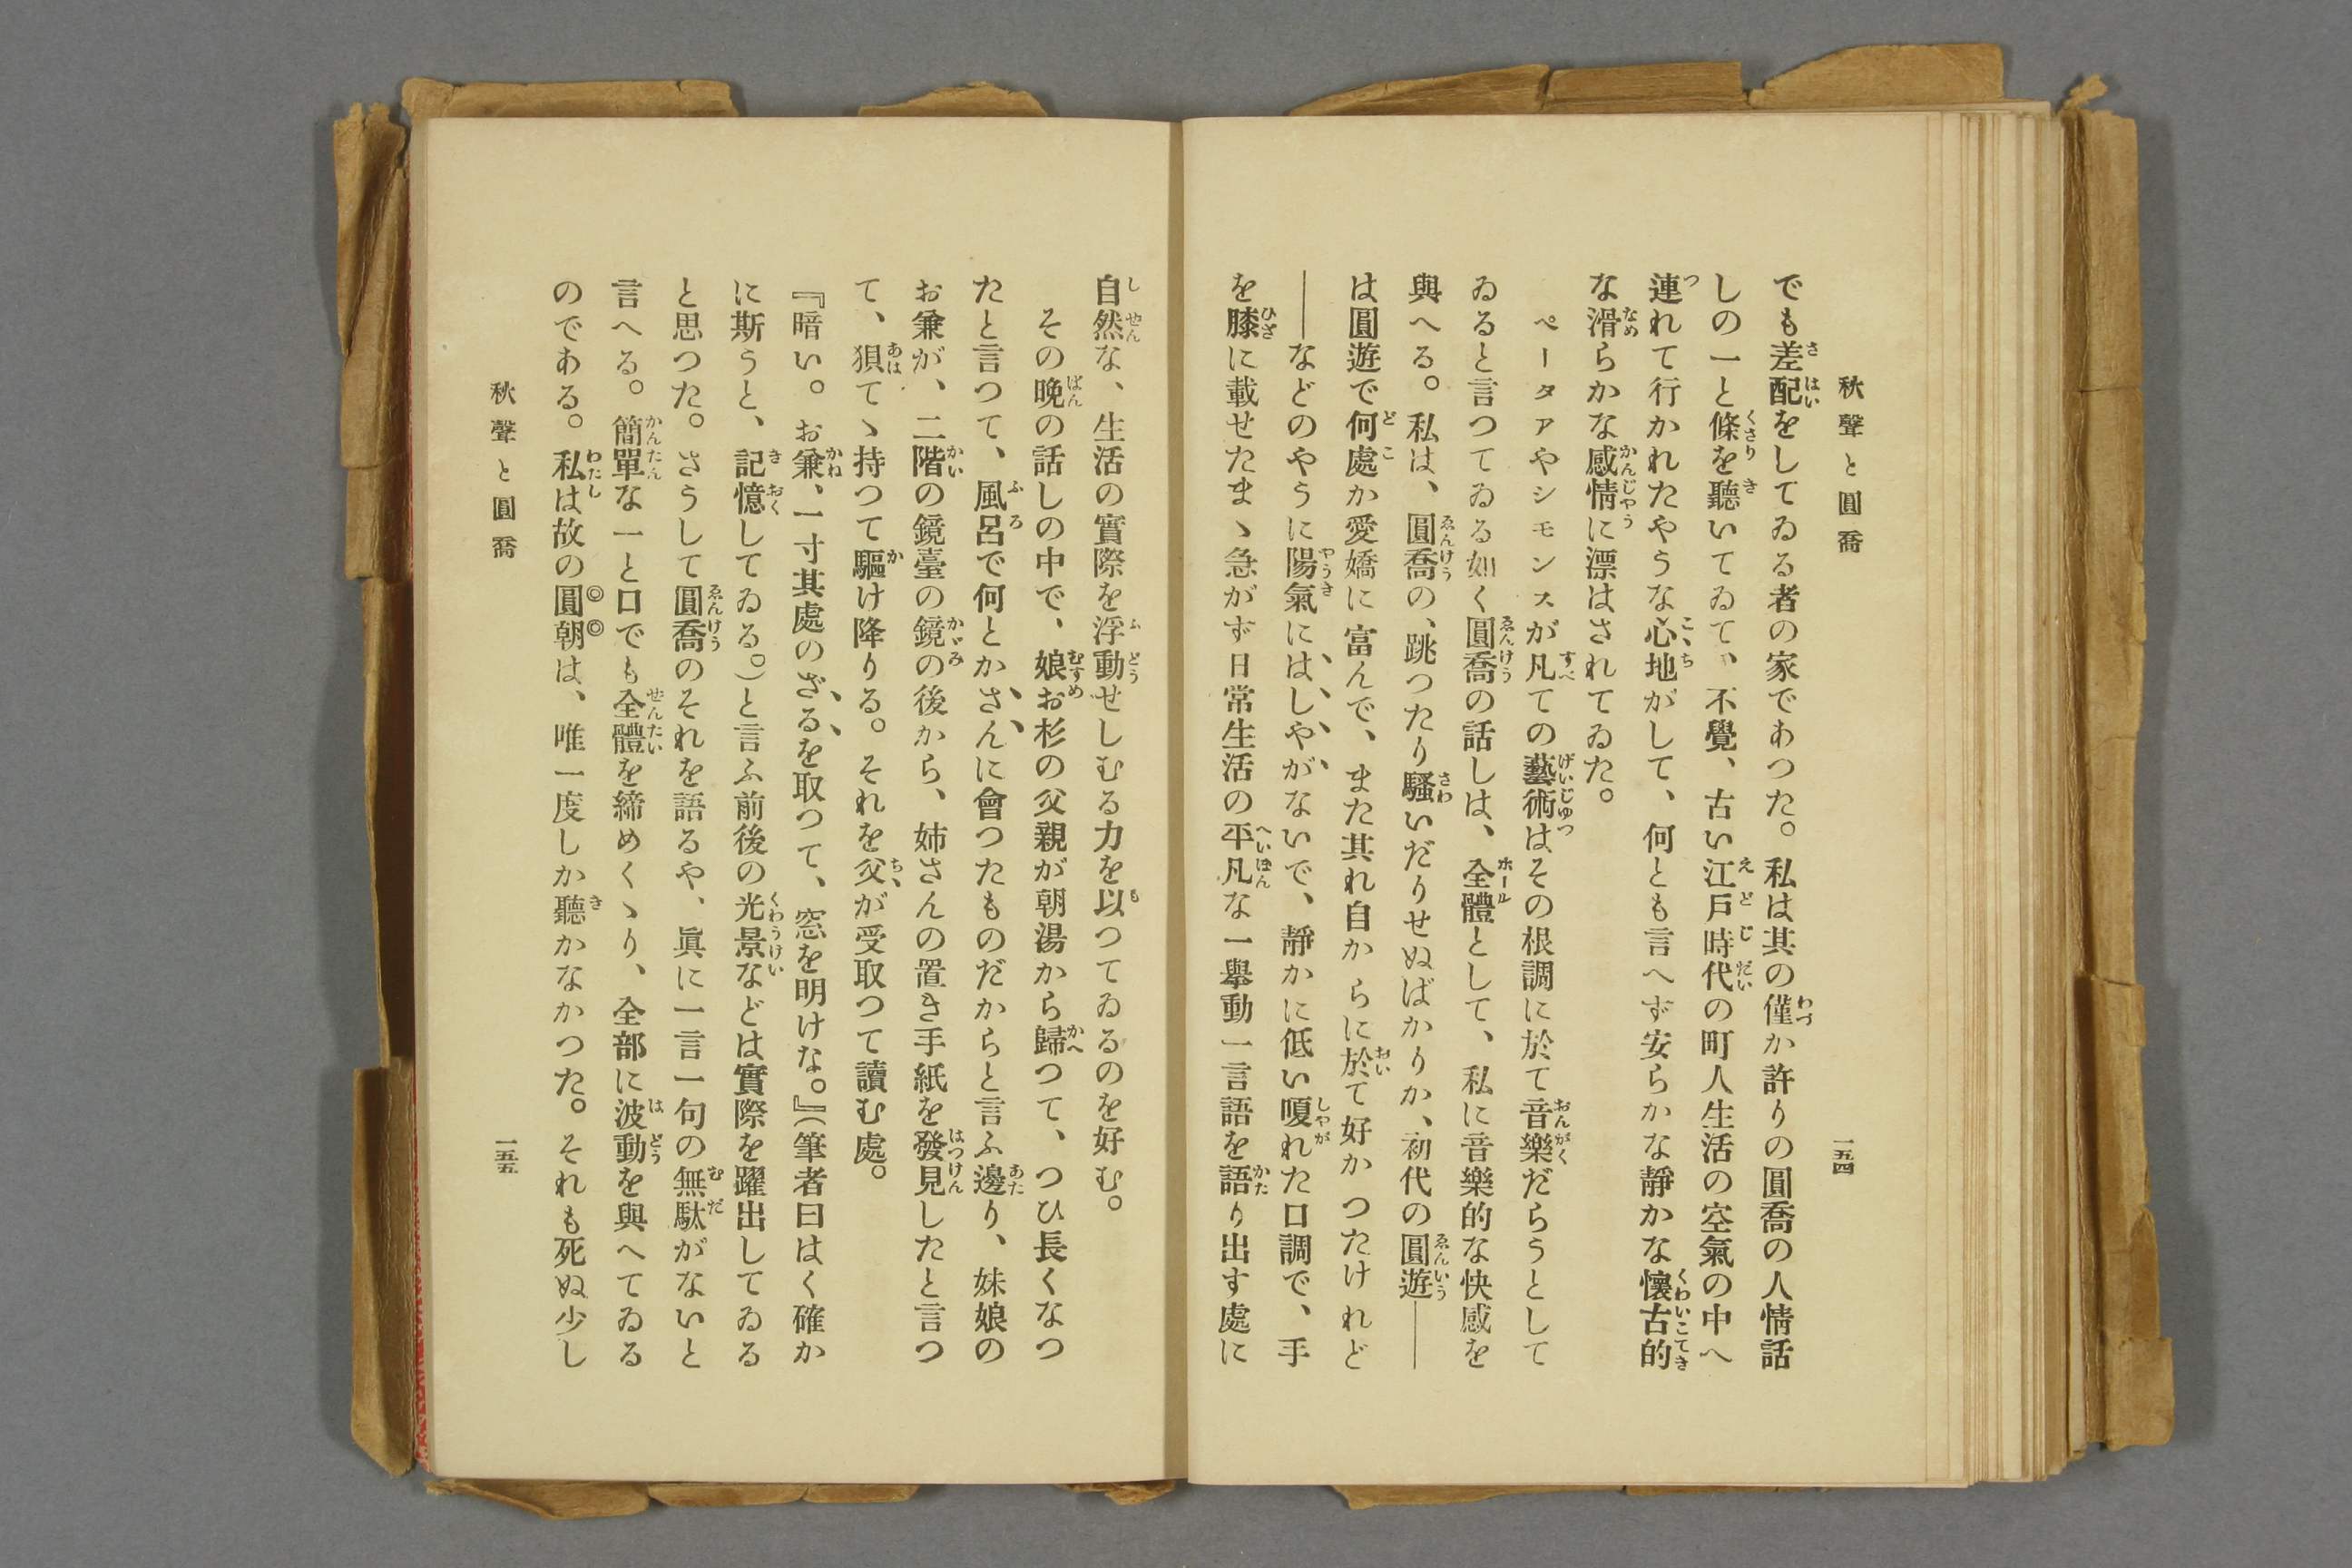 秋聲と圓喬
一五四
でも差配をしてゐる者の家であつた。私は其の僅か許りの圓喬の人情話
しの一と條を聽いてゐて、不覺、古い江戸時代の町人生活の空氣の中へ
連れて行かれたやうな心地がして、何とも言へず安らかな靜かな懷古的
な滑らかな感情に漂はされてゐた。
ペータアやシモンスが凡ての藝術はその根調に於て音樂だらうとして
ゐると言つてゐる如く圓喬の話しは、全體として、私に音樂的な快感を
與へる。私は、圓喬の、跳つたり騷いだりせぬばかりか、初代の圓遊――
は圓遊で何處か愛嬌に富んで、また其れ自からに於て好かつたけれど
――などのやうに陽氣にはしやがないで、靜かに低い嗄れた口調で、手
を膝に載せたまゝ急がず日常生活の平凡な一擧動一言語を語り出す處に
自然な、生活の實際を浮動せしむる力を以つてゐるのを好む。
その晩の話しの中で、娘お杉の父親が朝湯から歸つて、つひ長くなつ
たと言つて、風呂で何とかさんに會つたものだからと言ふ邊り、妹娘の
お兼が、二階の鏡臺の鏡の後から、姉さんの置き手紙を發見したと言つ
て、狽てゝ持つて驅け降りる。それを父が受取つて讀む處。
『暗い。お兼、一寸其處のざるを取つて、窓を明けな。』(筆者曰はく確か
に斯うと、記憶してゐる。)と言ふ前後の光景などは實際を躍出してゐる
と思つた。さうして圓喬のそれを語るや、眞に一言一句の無駄がないと
言へる。簡單な一と口でも全體を締めくゝり、全部に波動を與へてゐる
のである。私は故の圓朝は、唯一度しか聽かなかつた。それも死ぬ少し
秋聲と圓喬
一五五